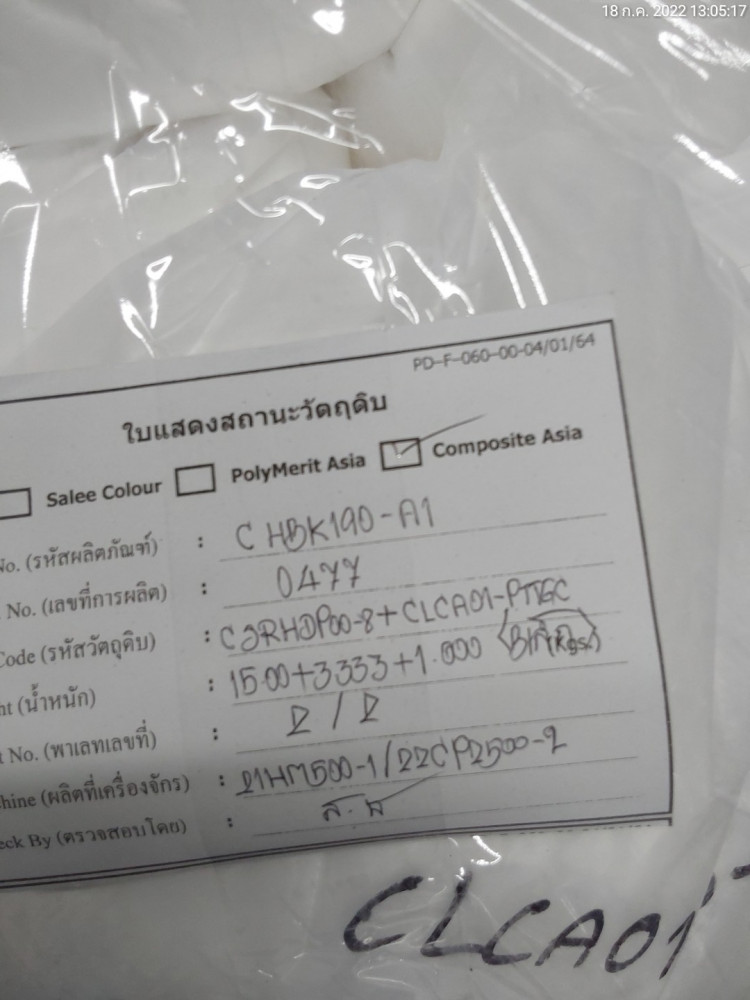 18 ก.ค. 2022 13:05:17
PD-F-060-00-04/01/64
ใบแสดงสถานะวัตถุดิบ
Salee Colour PolyMerit Asia Composite Asia
No. (รหัสผลิตภัณฑ์) : CHBK190-A1
No. (เลขที่การผลิต) : 0477
Code (รหัสวัตถุดิบ) : C2RHDP00-8+CLCA01-PTTGC
ht (น้ำหนัก) : 15.00+3.333+1.000 (Kgs.)
t No. (พาเลทเลขที่) : 2/2
hine (ผลิตที่เครื่องจักร) : 21HM500-1/22CP2500-2
eck By (ตรวจสอบโดย) :
CLCA01